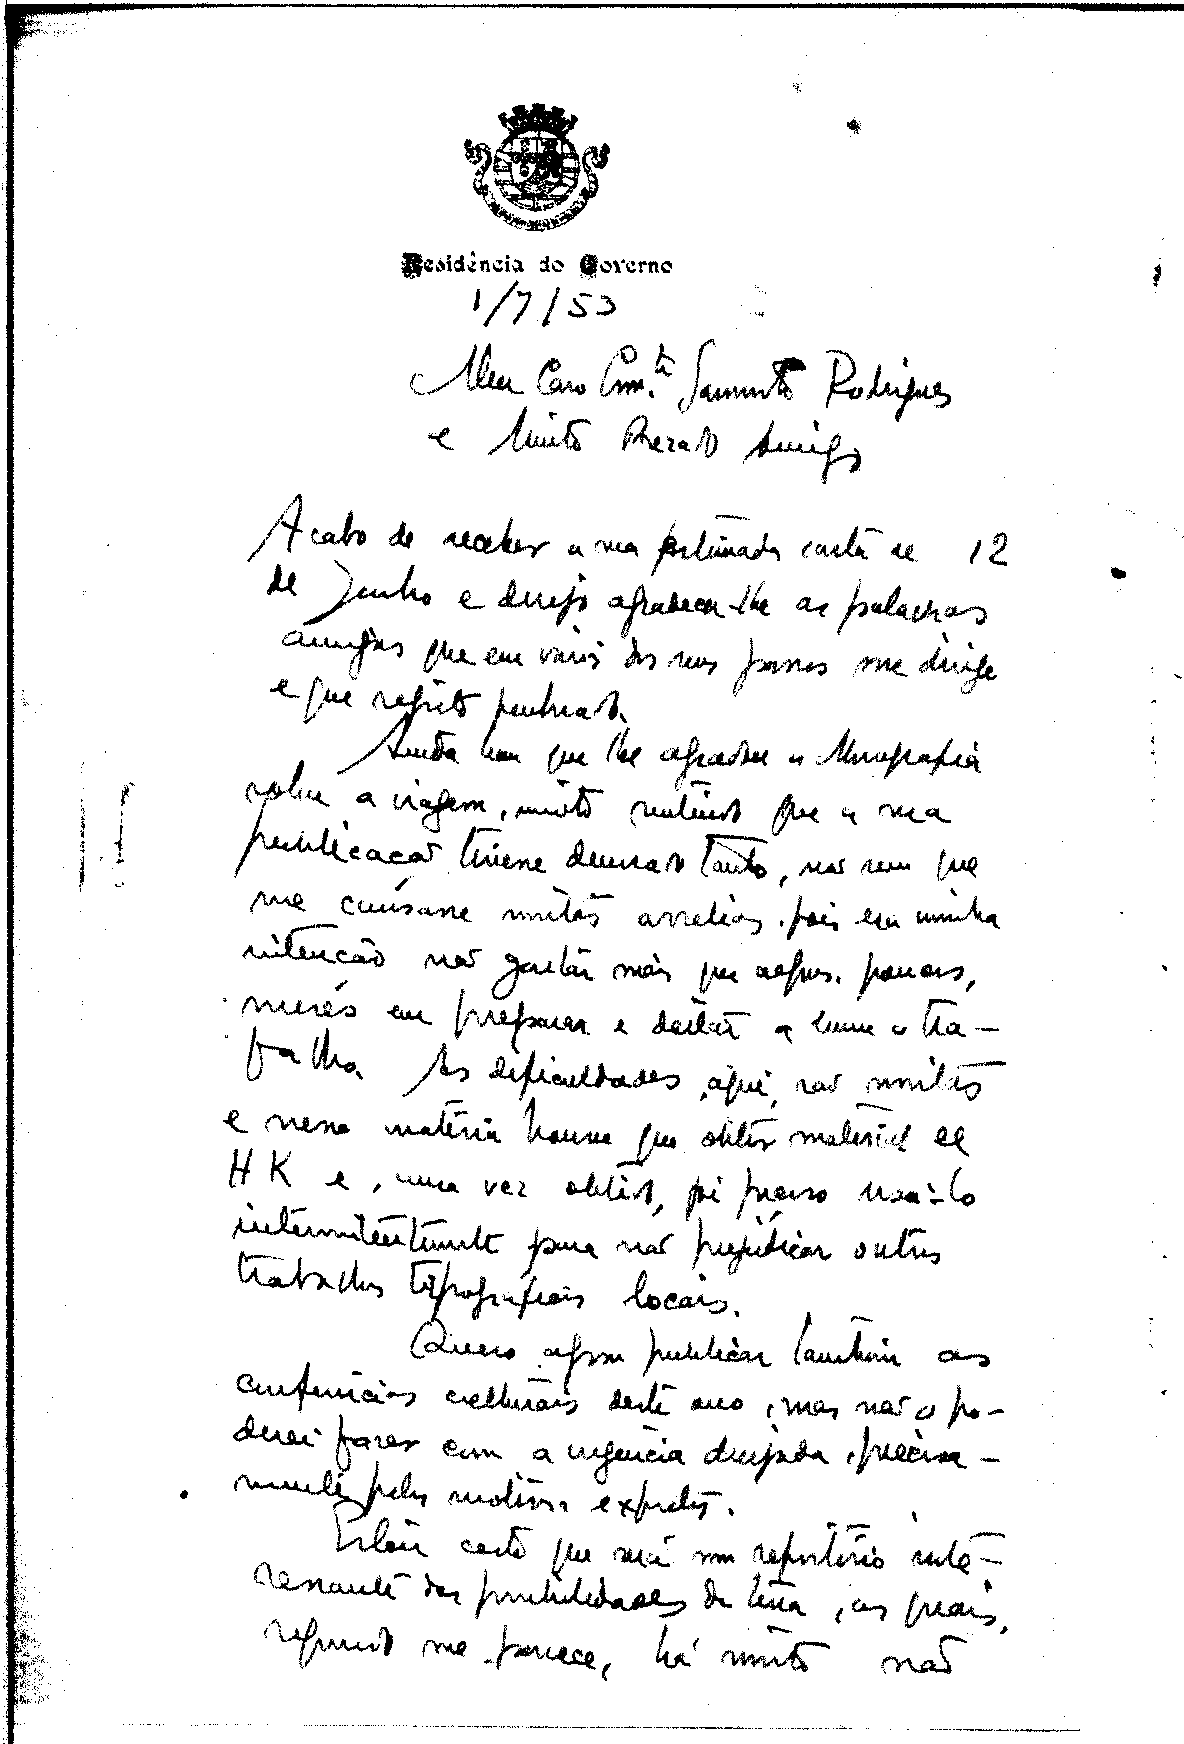 Residência do Governo
1/7/53
Meu Caro Com.te Sarmento Rodrigues
e Muito Prezado Amigo
Acabo de receber a sua estimada carta de 12
de Junho e desejo agradecer-lhe as palavras
amigas que em vários dos seus passos me dirige
e que registo penhorado.
Ainda bem que lhe agradou a Monografia
sobre a viagem, muito sentindo que a sua
publicação tivesse demorado tanto, não sem que
me causasse muitas arrelias, pois era minha
intenção não gastar mais que alguns, poucos,
meses em preparar e deitar a lume o tra-
balho. As dificuldades, aqui, são muitas
e nessa matéria houve que obter material de
HK e, uma vez obtido, foi preciso usá-lo
intermitentemente para não prejudicar outros
trabalhos tipográficos locais.
Quero agora publicar também as
conferências culturais deste ano, mas não o po-
derei fazer com a urgência desejada, precisa-
mente pelos motivos expostos.
Estou certo que será um repositório inte-
ressante das possibilidades da terra, as quais,
segundo me parece, há muito não